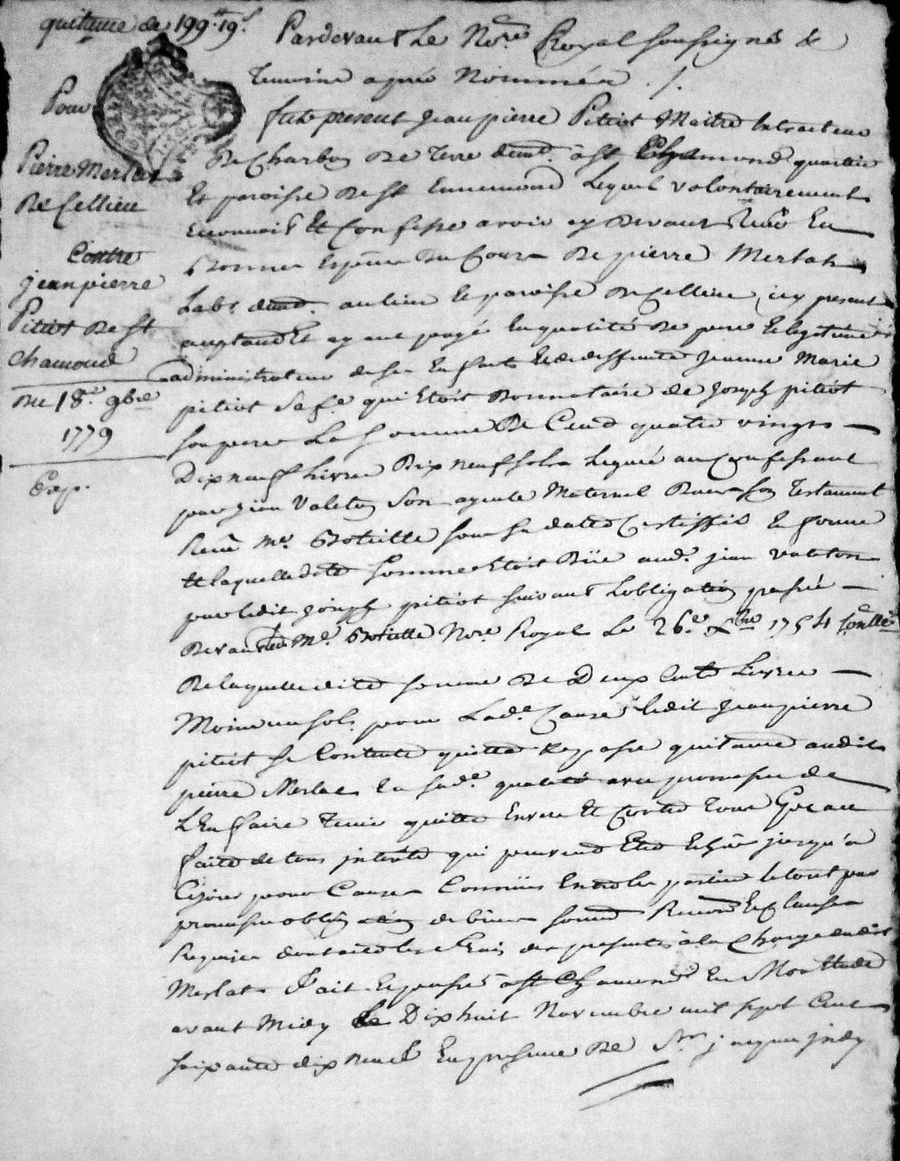 quittance de 199ᵗᵗ 19ˢ
Pour
Pierre Merlat
De Cellieu
Contre
jeanpierre
Pitiot De St
Chamond
Du 18ᵉ 9bre
1779
Exp.
Pardevant Le Noʳᵉ Royal soussigné &
Temoins apres Nommés ./.
fut present Jean pierre Pitiot Maitre Extracteur
De Charbon De Terre demᵗ à St Chamond quartier
Et paroisse De St Ennemond Lequel volontairement
reconnait Et Confesse avoir cy Devant Reçu En
Bonnes Especes Du Cours De pierre Merlat
Labʳ demᵗ au lieu et paroisse De Cellieu, icy present
acceptant Et ayant payé En qualité De pere Et legitime
administrateur de ses Enfants Et de deffunte Jeanne Marie
pitiot sa fᵉ qui Etoit Donnataire de Joseph pitiot
son pere La Somme De Cent quatre vingt
Dix neuf Livres Dix neuf sols Leguée au Confessant
par jean Valeton Son ayeule Maternel Dans son Testament
Reçu mᵉ sous sa datte
Et laquelle dite somme Etoit Düe audᵗ jean valeton
par ledit joseph pitiot suivant Lobligation passée
Devant ledᵗ Mᵉ Noʳᵉ Royal Le 26ᵉ 1754
De laquelle dite somme De Deux Cents Livres
Moins un sol pour Ladᵉ Cause ledit Jeanpierre
pitiot se Contente quitte Et passe quittance audit
pierre Merlat En sadᵉ qualité avec promesse de
L'En faire Tenir quitte Envers Et Contre Tous
de tous interets qui peuvent Etre jusqu'a
Ce jour pour Causes Connües Entre les parties le tout par
promesse obligation de biens Et Clauses
les presentes à la Charge dudit
Merlat fait Et passé à St Chamond En
avant Midy Le Dixhuit Novembre mil sept Cent
soixante dix neuf En presence De Sʳ jacques